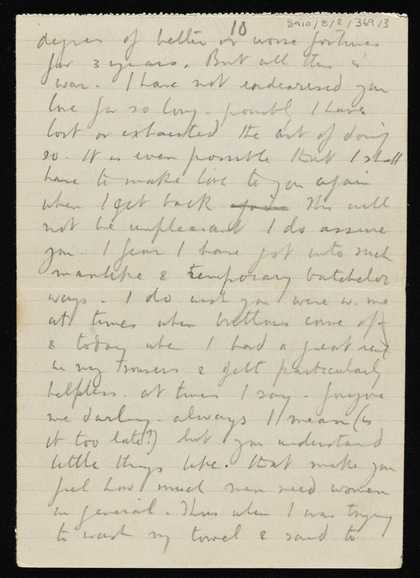 10
8910/8/2/369/3
degrees of better or worse fortunes
for 3 years. But all this is
war. I have not endearised you
love for so long - possibly I have
lost or exhausted the art of doing
so. It is even possible that I shall
have to make love to you again
when I get back This will
not be unpleasant I do assure
you. I fear I have got into such
manlike & temporary batchelor
ways. I do wish you were w. me
at times when buttons come off
& today when I had a great rent
in my trousers & felt particularly
helpless. at times I say - forgive
me darling - always I mean (is
it too late?) but you understand
little things like that make you
feel how much men need women
in general. Thus when I was trying
to wash my towel & said to